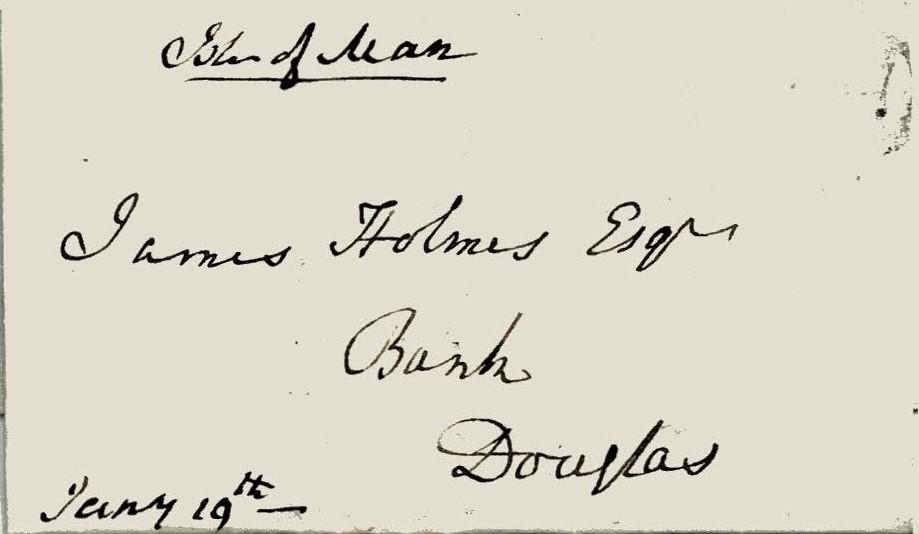 Isle of Man
James Holmes Esqr
Bank
Douglas
Jany 19th —